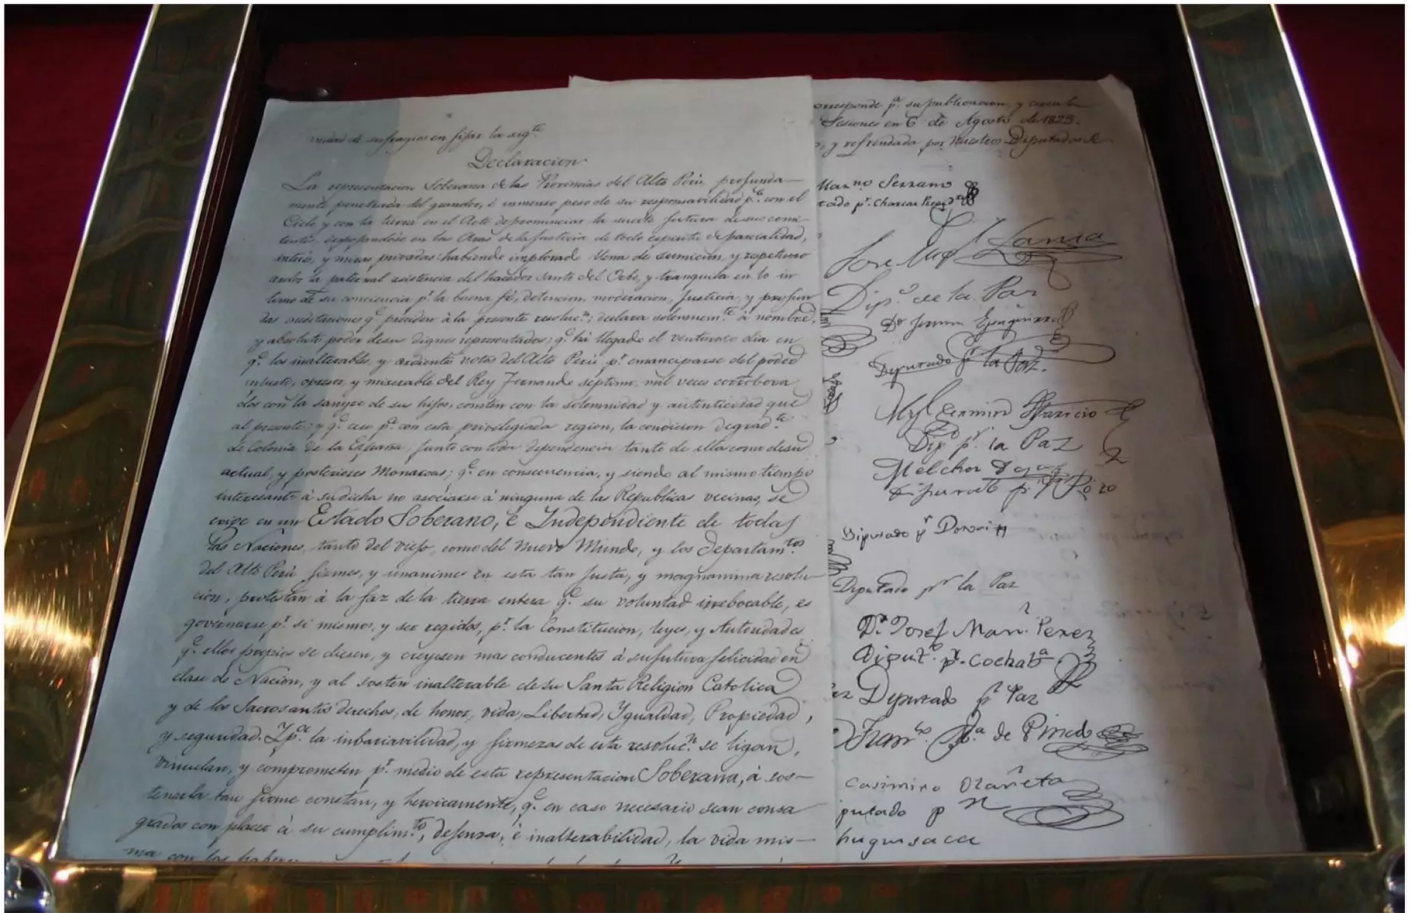 vidad de sufragios en fijar la sigte.
Declaracion
La representacion Soberana de las Provincias del Alto Perú, profunda-
mente penetrada del grandor, é inmenso peso de su responsabilidad pa. con el
Cielo y con la tierra en el Acto de pronunciar la suerte futura de sus comi-
tentes, despojandose en las Aras de la Justicia de todo espiritu de parcialidad,
interes, y miras privadas; habiendo implorado llena de sumicion, y respetuoso
ardor la paternal asistencia del hacedor Santo del Orbe, y tranquila en lo in-
timo de su conciencia pr. la buena fé, detencion, moderacion, Justicia, y profun-
das meditaciones qe. preciden á la presente resolucn.; declara solemnemte. á nombre,
y absoluto poder de sus dignos representados; qe. há llegado el venturoso dia en
qe. los inalterables, y ardientes votos del Alto Perú pr. emanciparse del poder
injusto, opresor, y miserable del Rey Fernando septimo, mil veces corrobora
dos con la sangre de sus hijos, consten con la solemnidad y autenticidad que
al presente; y qe. cese pa. con esta privilegiada region, la condicion degradte.
de Colonia de la España, junto con toda dependencia tanto de ella como de su
actual, y posteriores Monarcas; qe. en consecuencia, y siendo al mismo tiempo
interesante á su dicha no asociarse á ninguna de las Republicas vecinas, se
erige en un Estado Soberano, é Independiente de todas
las Naciones, tanto del viejo, como del nuevo Mundo, y los departamtos.
del Alto Perú firmes, y unanimes en esta tan justa, y magnanima resolu-
cion, protestan á la faz de la tierra entera qe. su voluntad irrebocable, es
governarse pr. si mismos, y ser regidos, pr. la Constitucion, leyes, y Autoridades
qe. ellos propios se diesen, y creyesen mas conducentes á su futura felicidad en
clase de Nacion, y al sosten inalterable de su Santa Religion Catolica
y de los Sacrosantos derechos, de honor, vida, Libertad, Ygualdad, Propiedad,
y seguridad. Y pa. la inbariavilidad, y firmeza de esta resolucn. se ligan,
vinculan, y comprometen pr. medio de esta representacion Soberana, á sos-
tenerla tan firme, constan, y heroicamente, qe. en caso necesario sean consa
grados con placer á su cumplimto., defensa, é inalterabilidad, la vida mis-
ma con los haberes
orresponde pa. su publicacion, y
Sesiones en 6 de Agosto de 1825.
y refrendada por nuestros Diputados
Marno Serrano
tado pr. Charcas
Jose Migl Lanza
Dipo. de la Paz
Diputado pr. la Paz.
Dip pr. la Paz
Melchor Daza
Diputado pr. Potosi
Diputado pr. la Paz
Dr. Josef Man. Perez
Diput. pr. Cochaba
Diputado pr. Paz
Franco. Pa. de Pinedo
Casimiro Olañeta
iputado pr
huquisaca